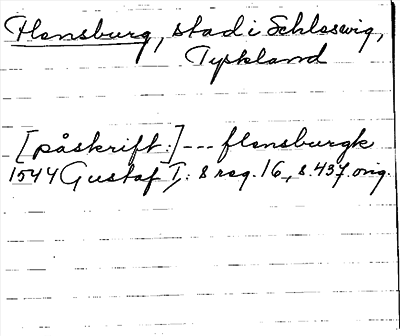 Flensburg, stad i Schleswig,
Tyskland
[påskrift:] --- flensburgk
1544 Gustaf I: s reg. 16, s. 437. orig.